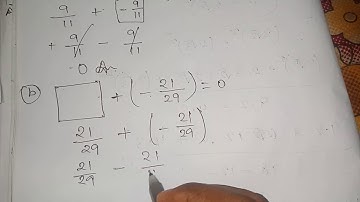 9/11 + [-9/11]
+ 9/11 - 9/11
0 Ans
(b) □ + (- 21/29) = 0
21/29 + (- 21/29)
21/29 - 21/